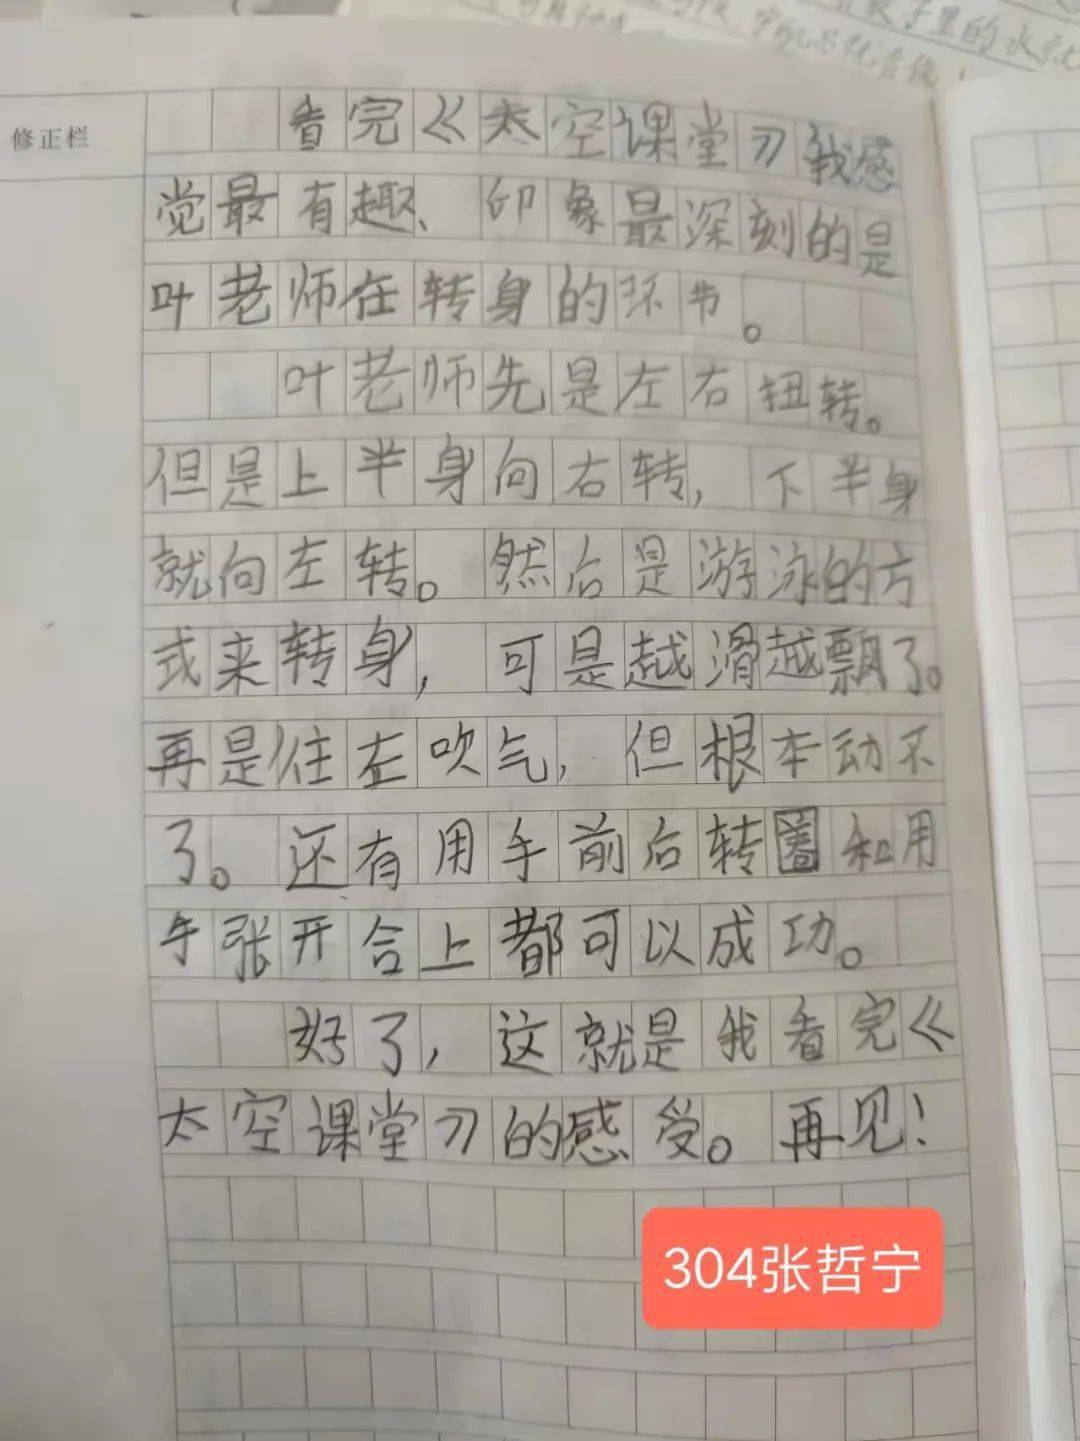 修正栏
看完《太空课堂》我感
觉最有趣、印象最深刻的是
叶老师在转身的环节。
叶老师先是左右扭转。
但是上半身向右转，下半身
就向左转。然后是游泳的方
式来转身，可是越滑越飘了。
再是往左吹气，但根本动不
了。还有用手前后转圈和用
手张开合上都可以成功。
好了，这就是我看完《
太空课堂》的感受。再见！
304张哲宁